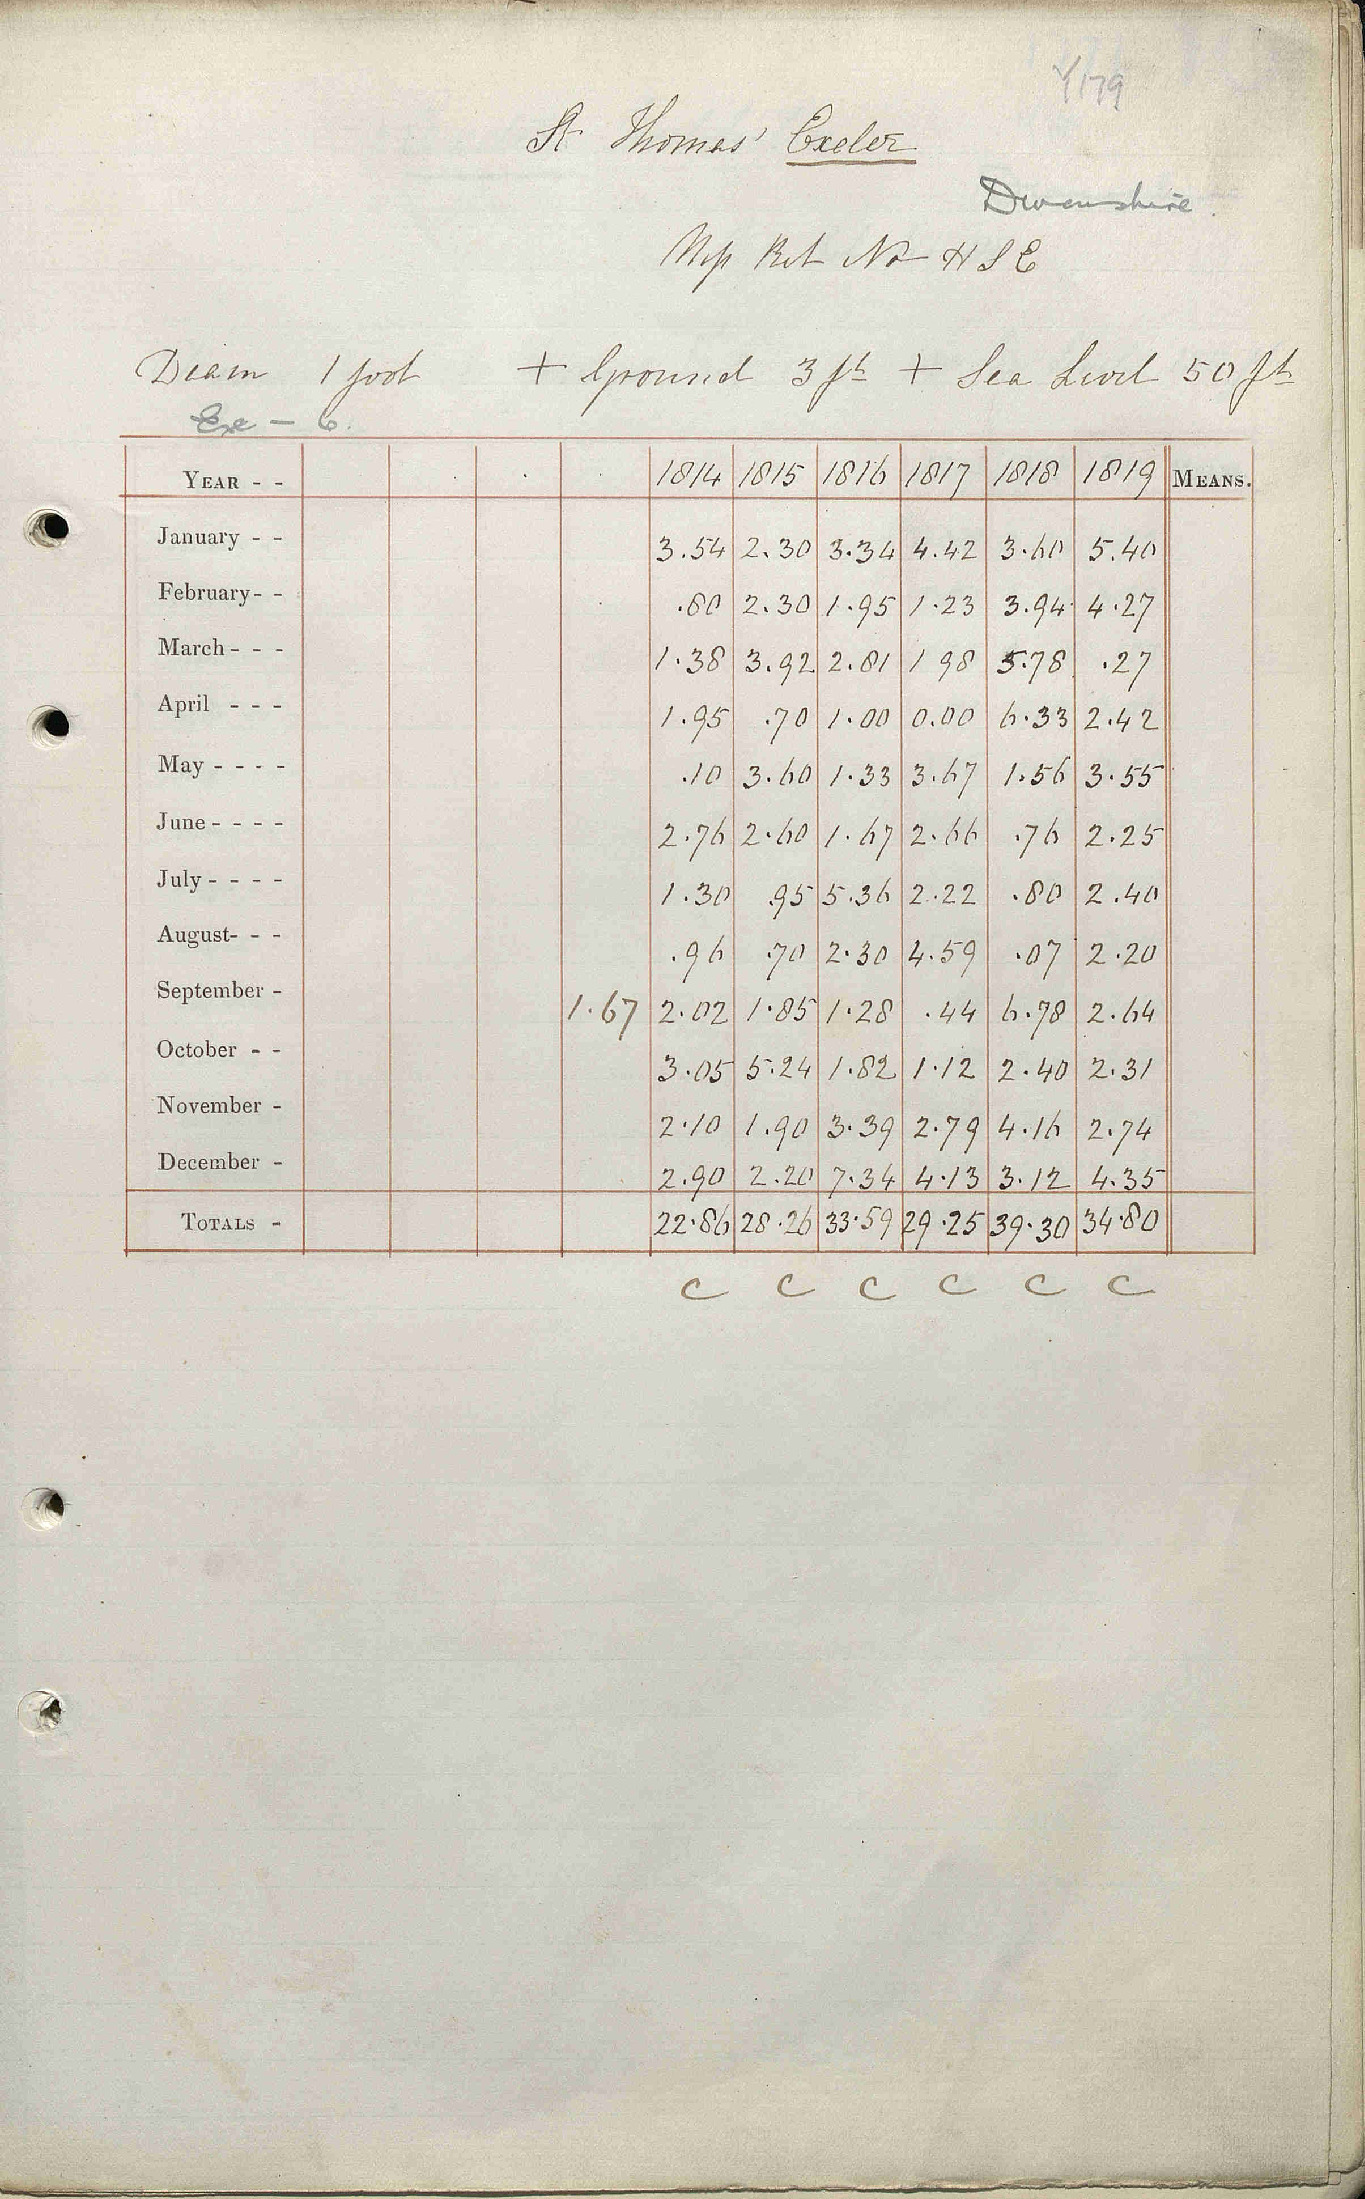 Y179
St Thomas' Exeter
Devonshire
Mp Ret No H S E
Diam 1 foot + Ground 3 ft + Sea Level 50 ft
Exe - 6.
YEAR - - 1814 1815 1816 1817 1818 1819 MEANS.
January - - 3.54 2.30 3.34 4.42 3.60 5.40
February - - .80 2.30 1.95 1.23 3.94 4.27
March - - - 1.38 3.92 2.81 1 98 5.78 .27
April - - - 1.95 .70 1.00 0.00 6.33 2.42
May - - - - .10 3.60 1.33 3.67 1.56 3.55
June - - - - 2.76 2.60 1.67 2.66 .76 2.25
July - - - - 1.30 .95 5.36 2.22 .80 2.40
August - - - .96 .70 2.30 4.59 .07 2.20
September - 1.67 2.02 1.85 1.28 .44 6.78 2.64
October - - 3.05 5.24 1.82 1.12 2.40 2.31
November - 2.10 1.90 3.39 2.79 4.16 2.74
December - 2.90 2.20 7.34 4.13 3.12 4.35
TOTALS - 22.86 28.26 33.59 29.25 39.30 34.80
C C C C C C